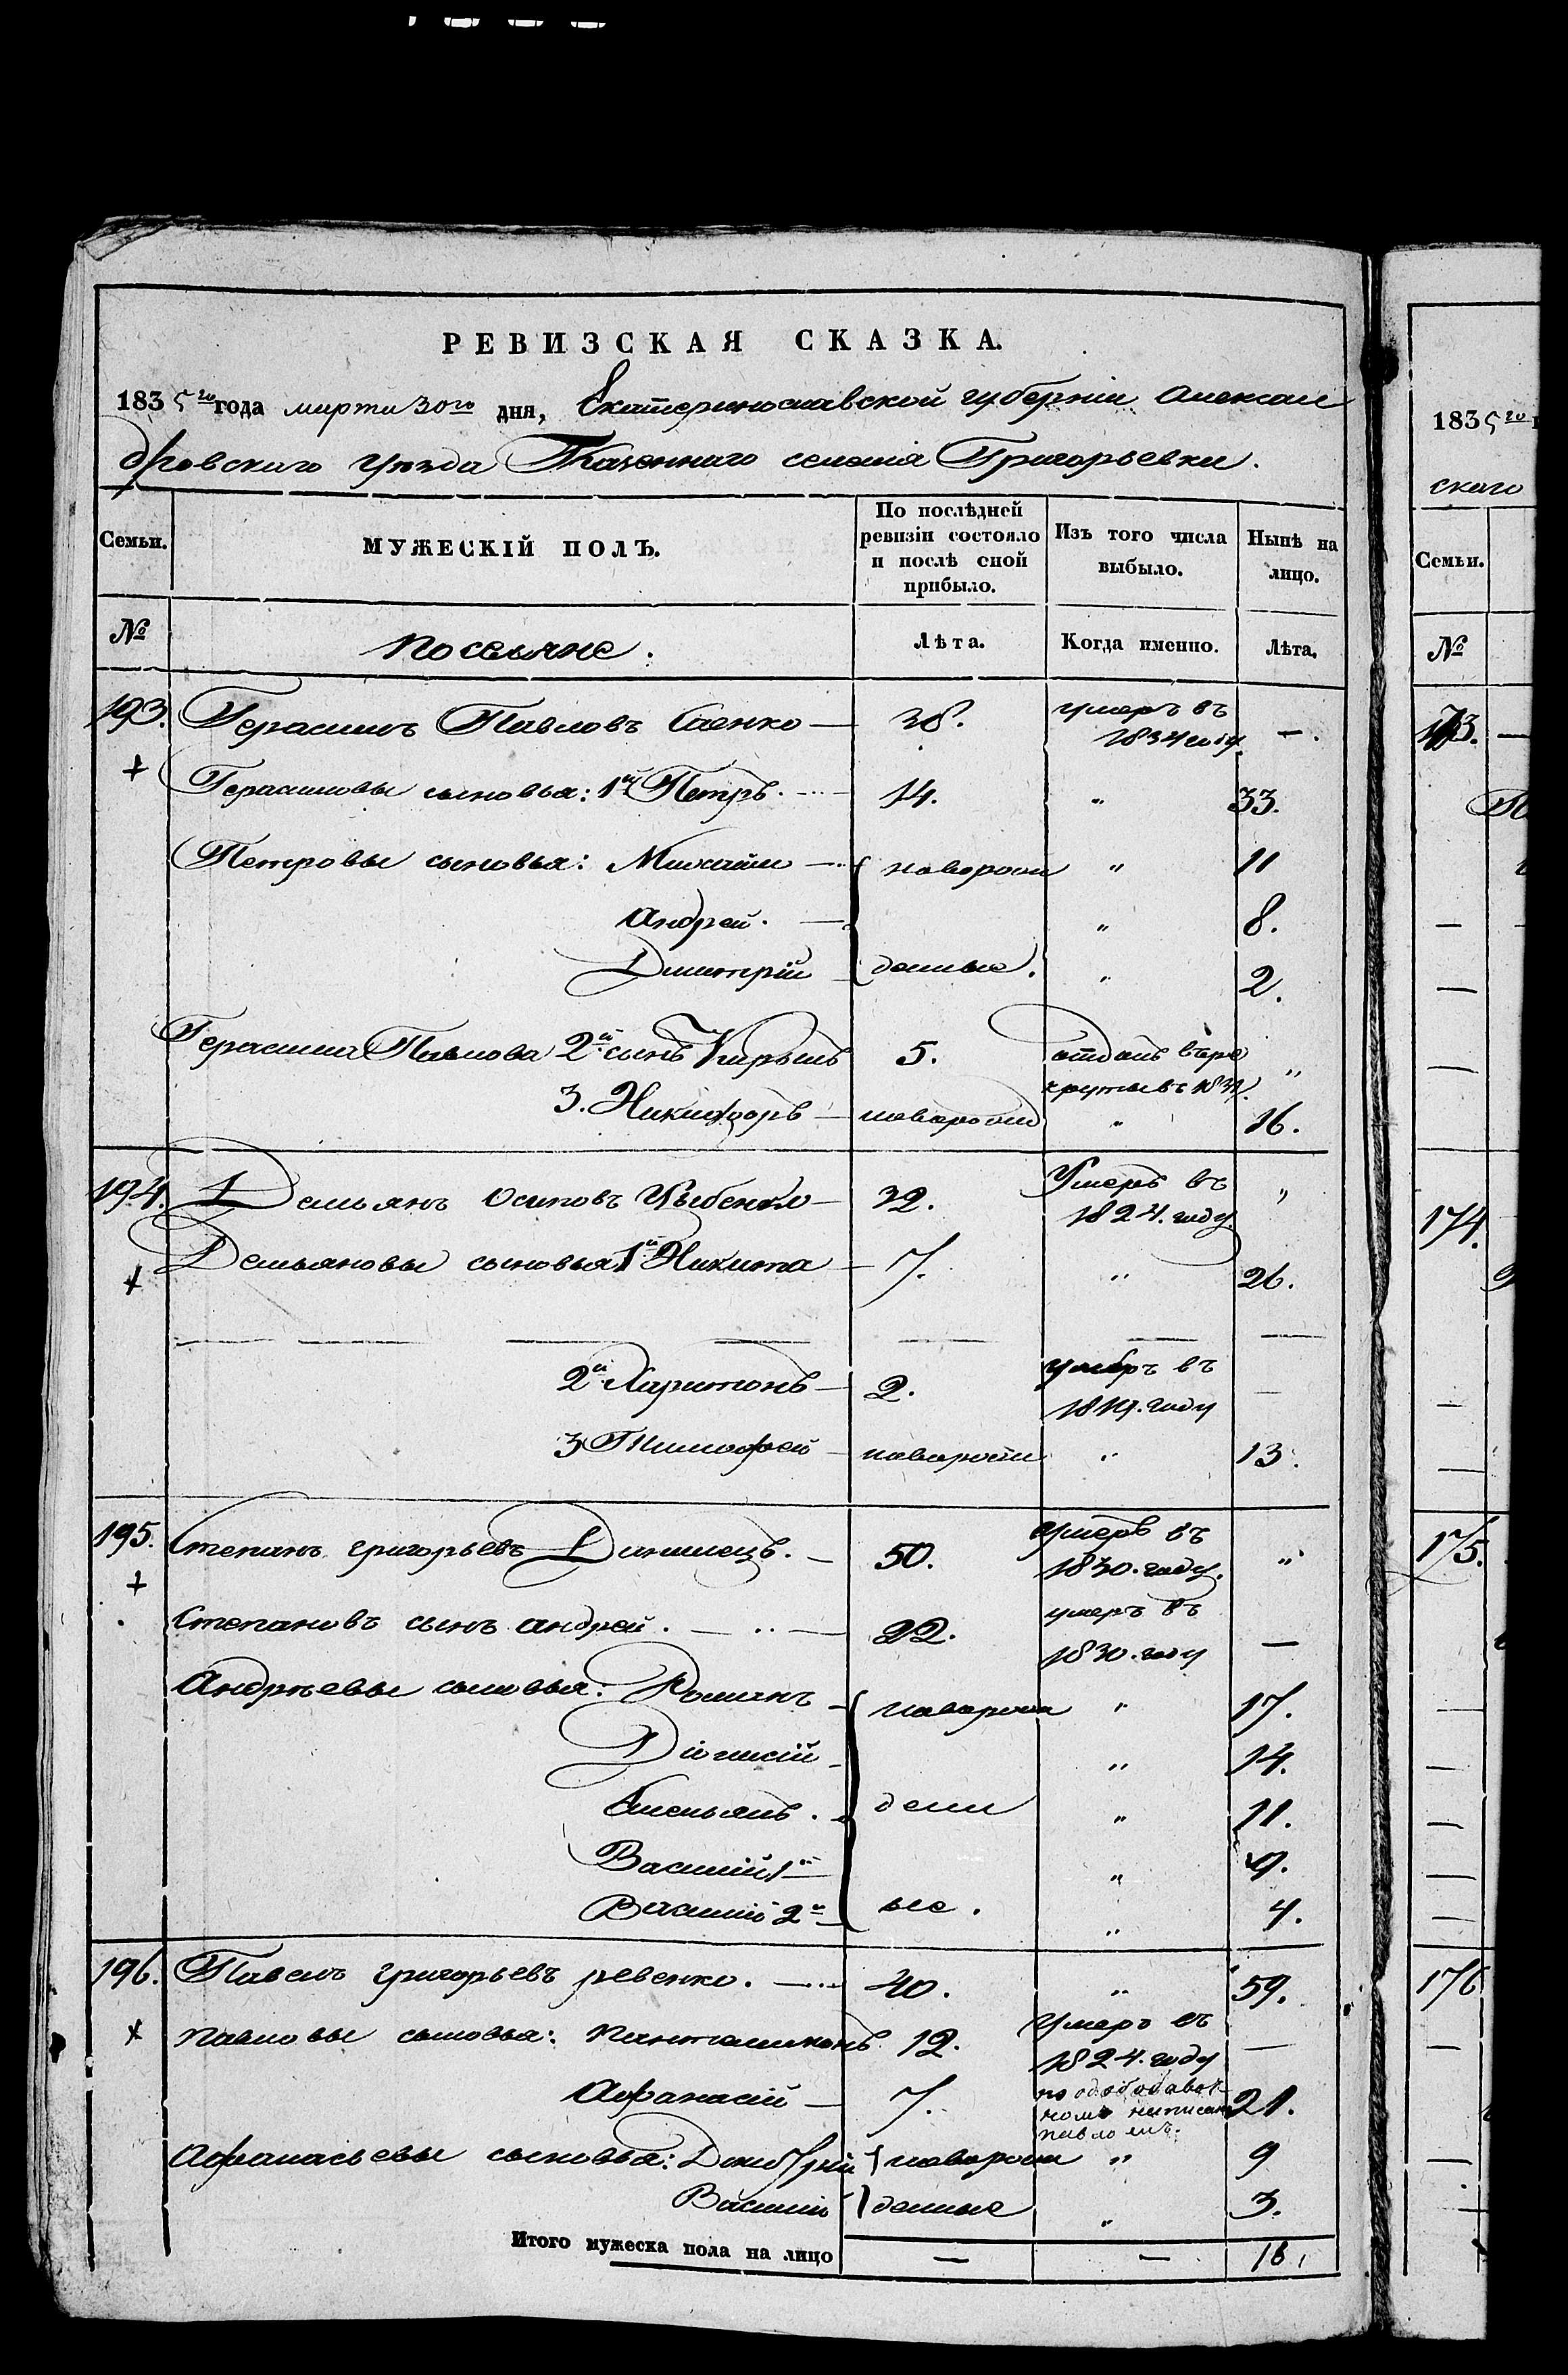 РЕВИЗСКАЯ СКАЗКА.
1835го года марта 30го дня, Екатеринославской губерніи Алексан
дровскаго уѣзда Казеннаго селенія Григорьевки.
Семьи. МУЖЕСКІЙ ПОЛЪ. По послѣдней ревизіи состояло и послѣ оной прибыло. Изъ того числа выбыло. Нынѣ на лицо.
№ Поселяне. Лѣта. Когда именно. Лѣта.
193. Герасимъ Павловъ Саенко — 38. умеръ въ 1834 году. —.
+ Герасимовы сыновья: 1й Петръ. 14. " 33.
Петровы сыновья: Михайло новорож " 11
Андрей. — " 8.
Дмитрій денные. " 2.
Герасима Павлова 2й сынъ Кирылъ 5. отданъ въ ре круты въ "
3. Никифоръ — новорож " 16.
194. Демьянъ Осиповъ Цыбенко — 32. Умеръ въ 1824. году "
+ Демьяновы сыновья 1й Никита — 7. " 26.
2й Харитонъ — 2. умеръ въ 1819. году —
3 Тимофей — новорожд " 13.
195. Степанъ григорьевъ Данилецъ. — 50. умеръ въ 1830. году. "
+ Степановъ сынъ андрей. — 22. умеръ въ 1830. году —
Андрѣевы сыновья: Романъ — новорож " 17.
Діонисій — " 14.
Емельянъ. — денн " 11.
Василий 1й " 9.
Василий 2й — ые. " 4.
196. Павелъ григорьевъ ревенко. — 40. " 59.
+ павловы сыновья: пантелимонъ 12. умеръ въ 1824. году —
Афанасій — 7. 21.
Афанасьевы сыновья: Дмитрій новорож " 9
Василий денные " 3.
Итого мужеска пола на лицо — — 16.
1835го
скаго
Семьи.
№
173.
174.
175.
176